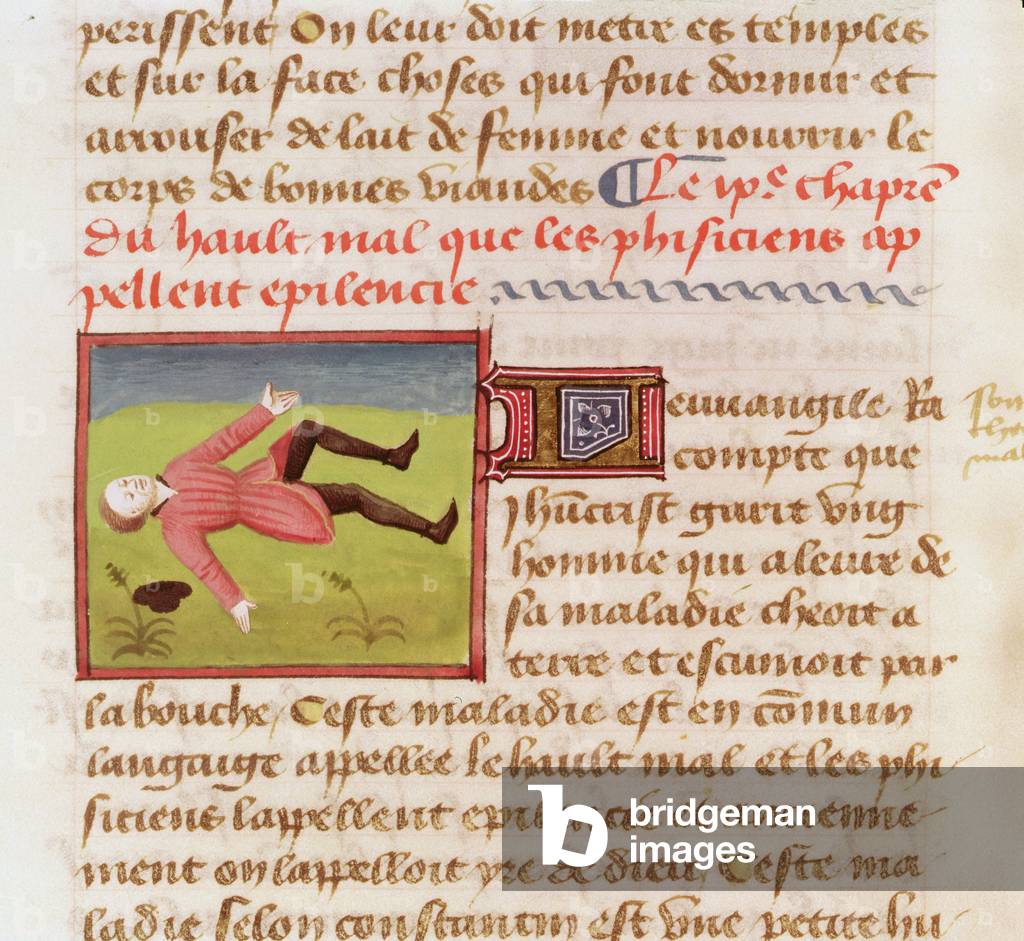 perissent On leur doit metre es temples
et sur la face choses qui font dormir et
arrouser de lait de femme et nourrir le
corps de bonnes viandes ¶ Le ix.e chapre
du hault mal que les phisiciens ap
pellent epilencie
Leuuangile Ra
compte que
Jhucrist garit vng
homme qui a leure de
sa maladie cheoit a
terre et escumoit par
la bouche / Ceste maladie est en comun
langaige appellee le hault mal et les phi
siciens lappellent epilencie et
ment on lappelloit yre de dieu Ceste ma
ladie selon constantin est vne petite hu
bridgeman
images